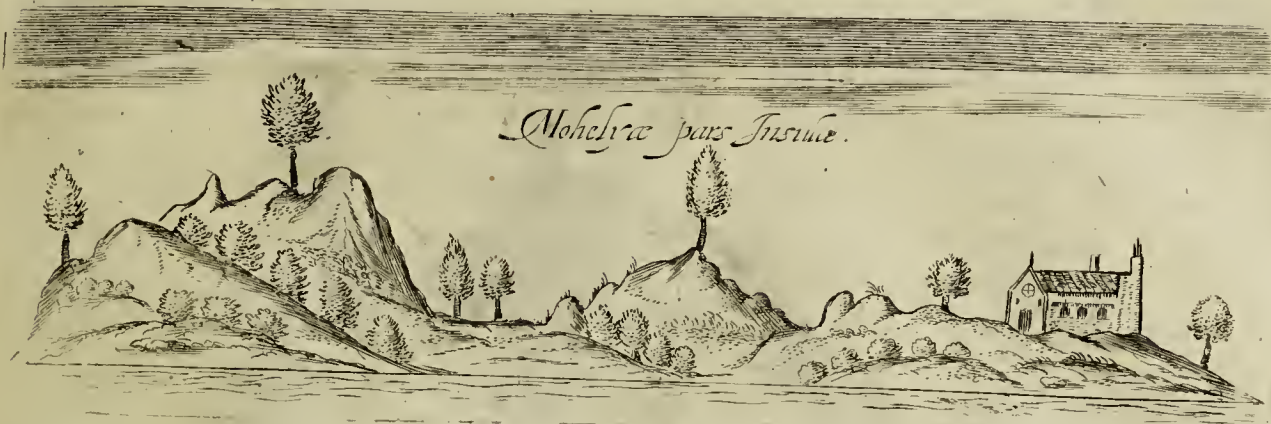 Mohelyæ pars Insulæ.